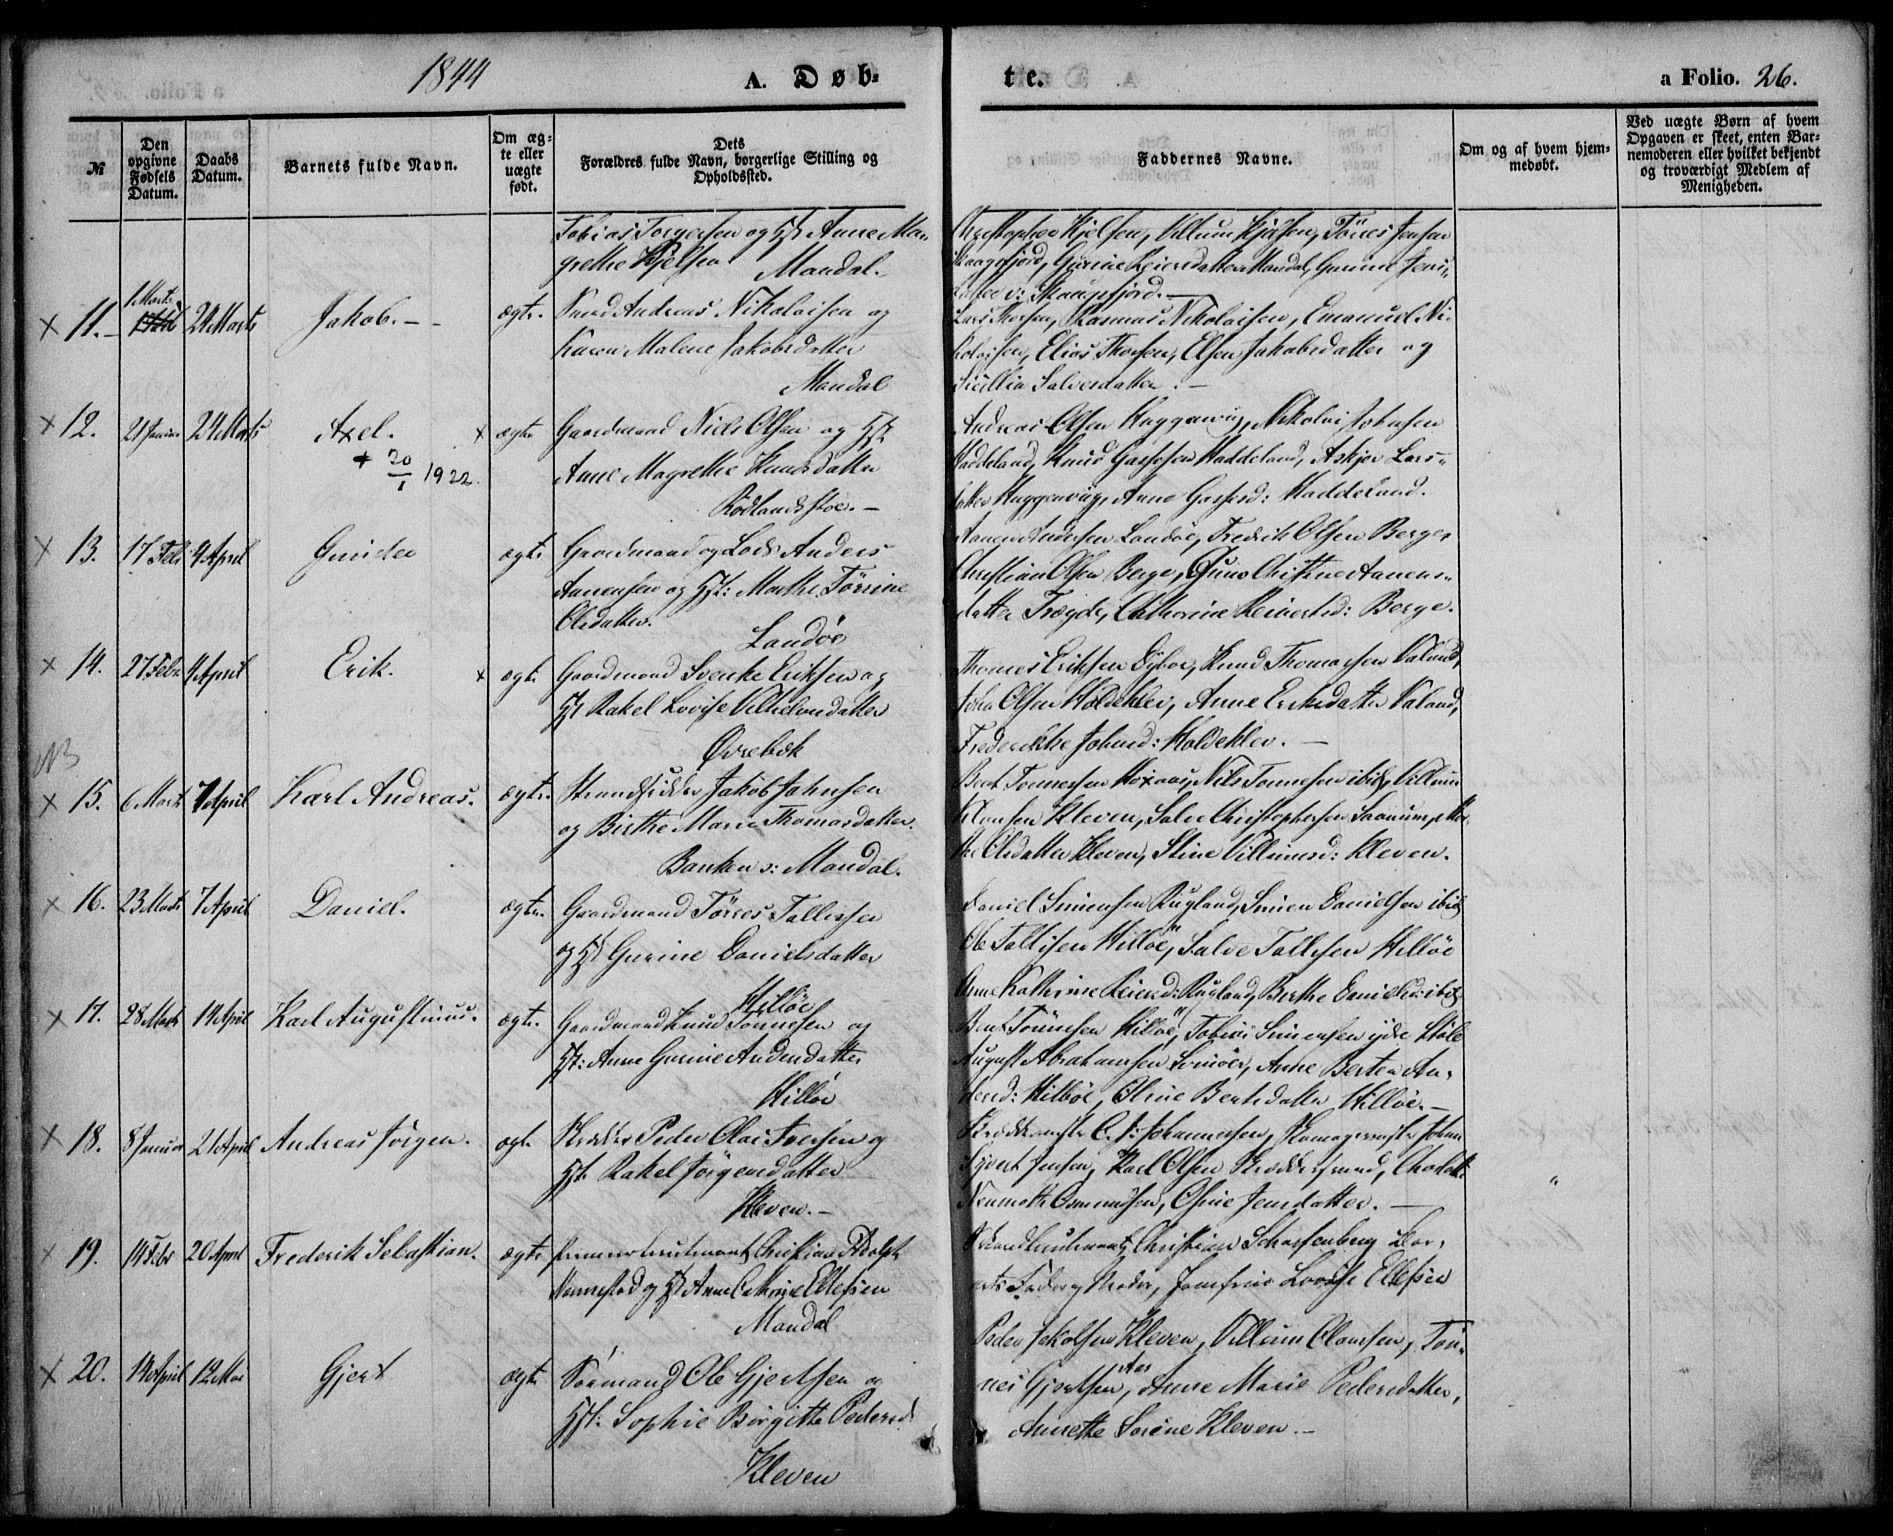 1844 A. Døb-
te. a Folio. 26.
№
Den opgivne Fødsels Datum.
Daabs Datum.
Barnets fulde Navn.
Om ægte eller uægte født.
Dets
Forældres fulde Navn, borgerlige Stilling og
Opholdssted.
Faddernes Navne.
Om og af hvem hjem-
medøbt.
Ved uægte Børn af hvem
Opgaven er skeet, enten Bar-
nemoderen eller hvilket bekjendt
og troværdigt Medlem af
Menigheden.
Tobias Torgersen og Hst Anne Mar-
grethe Kjelsen Mandal.
Christopher Kjelsen, Villum Kjelsen, Tönes Jensen
Skaagsfjord, Gurine Reiersdatter Mandal, Gunine Jens-
datter v: Skaugsfjord.
11. 1 Marts 24 Marts Jakob. ægte.
Andreas Nikolaisen og
Karen Malene Jakobsdatter
Mandal
Lars Thorsen, Rasmus Nikolaisen, Emanuel Ni-
kolaisen, Elias Thorsen, Elsen Jakobsdatter og
Sicillia Salvesdatter.
12. 21 Januar 24 Marts Axel. × ægte
+ 20/1 1922.
Gaardmand Niels Olsen og Hst
Anne Magrethe Knudsdatter
Rödlandsstøe.
Andreas Olsen Huggenvig, Nikolai Johnsen
Haddeland, Knud Gassesen Haddeland, Askjer Lars-
datter Huggenvig, Anne Gassesd: Haddeland.
13. 17 Feb 4 April Gunder ægte
Gaardmand og Lods Anders
Aanensen og Hst: Marthe Tørrine
Olsdatter. Landøe
Aanen Andersen Landøe, Fredrik Olsen Berge,
Christian Olsen Berge, Christine Aanens-
datter Trægde, Catherine Reinertsd: Berge.
14. 27 Febr 4 April Erik. × ægte
Gaardmand Svenke Eriksen og
Hst Rakel Lovise Vilhelmsdatter
Øvrebøk
Thomas Eriksen Dyboe, Knud Thomassen Valand,
John Olsen Holdeklev, Anne Eriksdatter Valand,
Frederikke Johnsd: Holdeklev.
NB
15. 6 Marts 7 April Karl Andreas. ægte.
Strandsidder Jakob Johnsen
og Birthe Marie Thomasdatter.
Banken v: Mandal.
Bent Tönnessen Hoxaas, Nils Tönnesen ibid, Villum
Klausen Kleven, Salve Christophersen Saanum,
Olsdatter Kleven, Stine Villumsd: Kleven.
16. 23 Marts 7 April Daniel. ægte.
Gaardmand Törres Tallissen
og Hst Gurine Danielsdatter
Hilløe
Daniel Simensen Rugland, Simen Danielsen ibid
Ole Tallisen Hilløe, Salve Tallisen Hilløe
Anne Kathrine Reiersd: Rugland, Berthe Danielsd: ibid
17. 28 Marts 14 April Karl Augustinus. ægte.
Gaardmand Knud Tönnesen og
Hst: Anne Gurine Andersdatter
Hilløe
Bent Tönnesen Hilløe, Tobias Simensen ydre Støle
August Abrahamsen, Anne Berthea An-
dersd: Hilløe, Oline Bentsdatter Hilløe.
18. 8 Januar 21 April Andreas Jörgen. ægt.
Skrædder Peder Olai Iversen og
Hst. Rakel Jørgensdatter
Kleven.
Skræddermester C. Johannesen, Skomagermester Johan
Sivert Jensen, Karl Olsen Skræddersvend,
Osmundsen, Oline Jensdatter.
"
19. 14 Febr 20 April Frederik Sebastian. ægte
Premierlieutenant Christian Adolph
Mannestad og Hst Anne Cathrine Ellefsen
Mandal
Secondlieutenant Christian Scharffenberg, Bar-
nets Fader og Moder, Jomfrue Lovise Ellefsen
20. 14 April 12 Mai Gjert ægte
Sømand Ole Gjertsen og
Hst: Sophie Birgitte Pedersd.
Kleven
Peder Jakobsen Kleven, Villum Clausen, Tön-
nes Gjertsen Aas, Anne Marie Pedersdatter,
Annette Sörine Kleven.